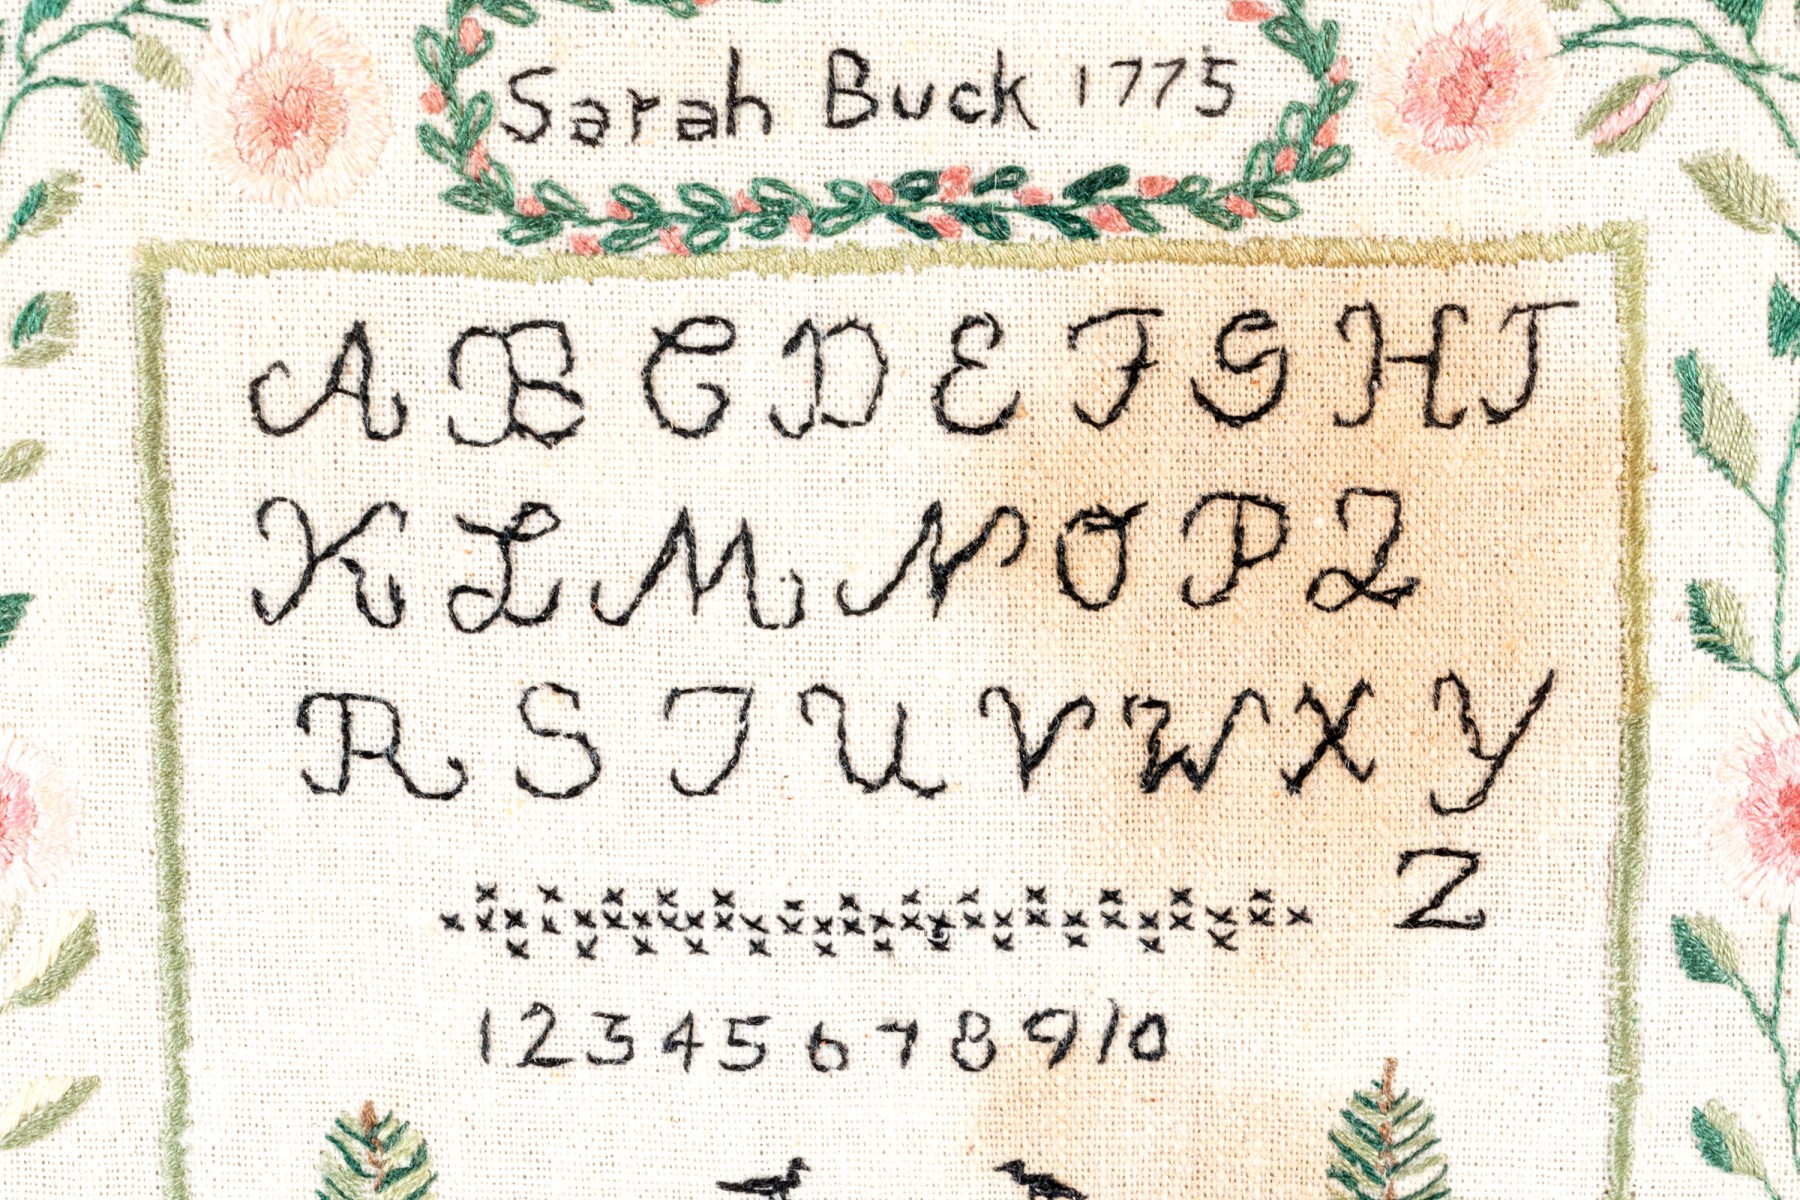 Sarah Buck 1775
A B C D E F G H J
K L M N O P Q
R S T U V W X Y
Z
1 2 3 4 5 6 7 8 9 10